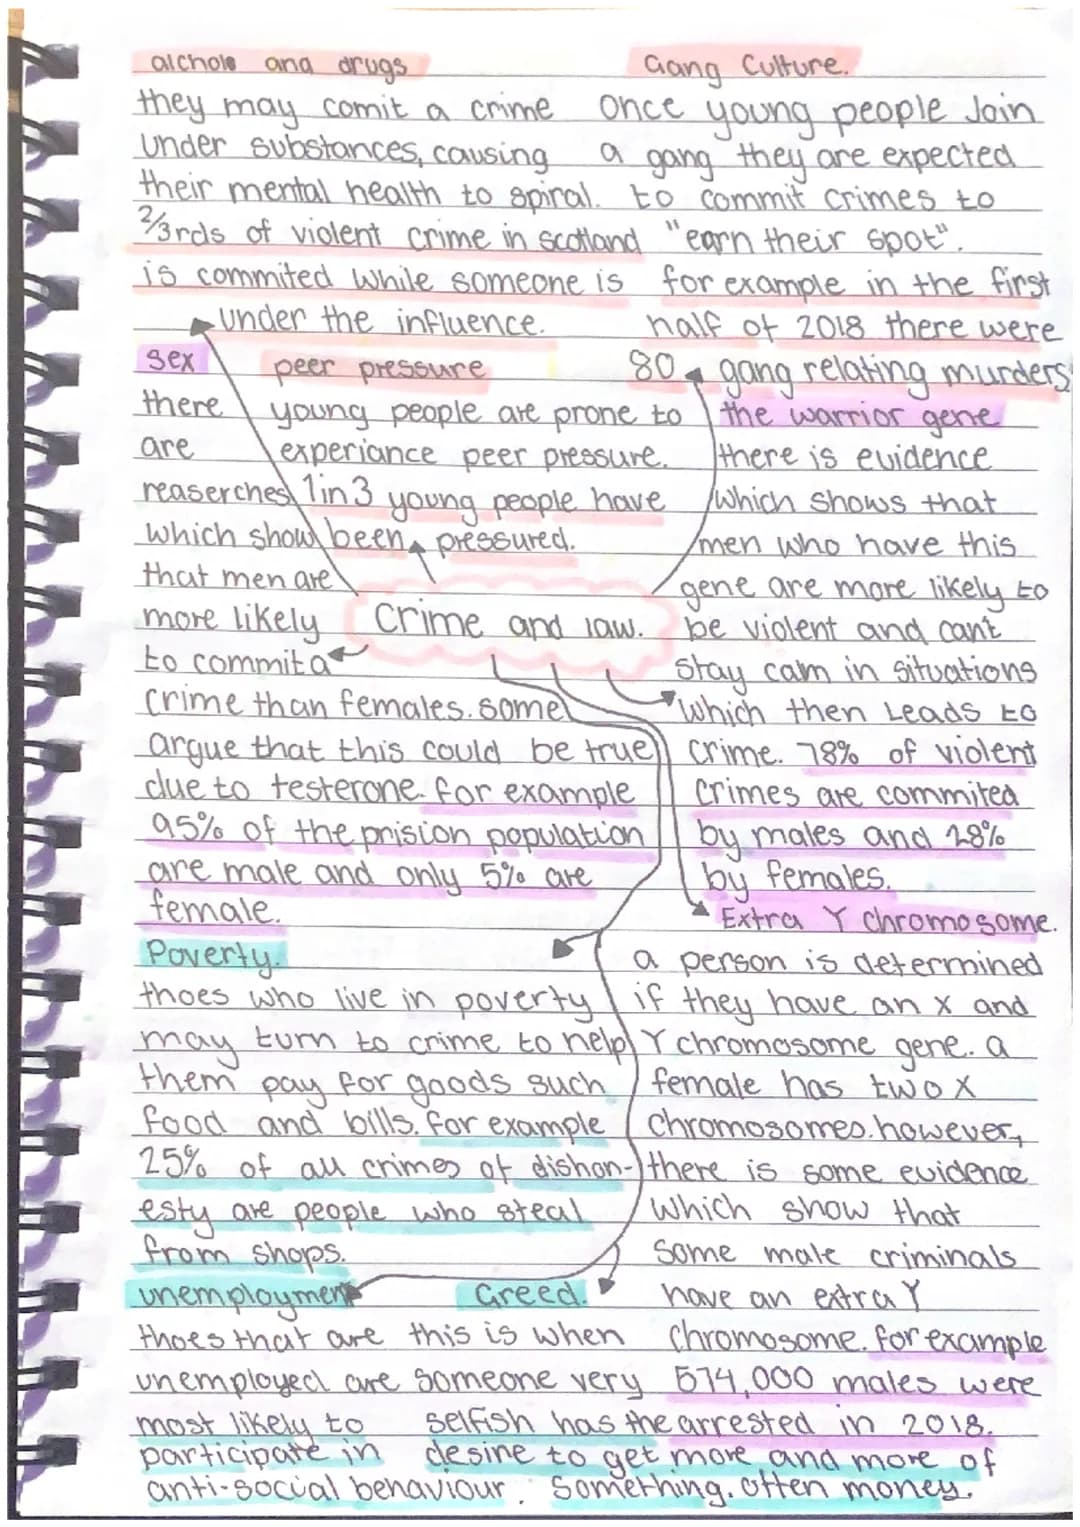 alchole and drugs
they may comit a crime
under substances, causing
their mental health to spiral.
2/3rds of violent crime in scotland
is commited while someone is
under the influence.
Gang Culture.
once young people Join
a gang they are expected
to commit crimes to
"earn their spot".
for example in the first
half of 2018 there were
80 gang relating murders
sex
there
are
reaserches
which show
that men are
more likely
to commit a
crime than females. some
argue that this could be true
due to testerone. for example
95% of the prision population
are male and only 5% are
female.
peer pressure
young people are prone to
experiance peer pressure.
1 in 3 young people have
been pressured.
the warrior gene
there is evidence
which shows that
men who have this
gene are more likely to
be violent and cant
stay calm in situations
which then Leads to
crime. 78% of violent
crimes are commited
by males and 28%
by females.
Crime and law.
Extra Y chromosome.
a person is determined
if they have an x and
Y chromosome gene. a
female has two X
chromosomes. however,
there is some evidence
which show that
some male criminals
have an extra Y
chromosome. for example
574,000 males were
arrested in 2018.
Poverty.
thoes who live in poverty
may turn to crime to help
them pay for goods such
food and bills. for example
25% of all crimes of dishon-
esty are people who steal
from shops.
unemployment
thoes that are
unemployed are
most likely to
participate in
anti-social behaviour.
Greed.
this is when
someone very
selfish has the
desire to get more and more of
something. often money.